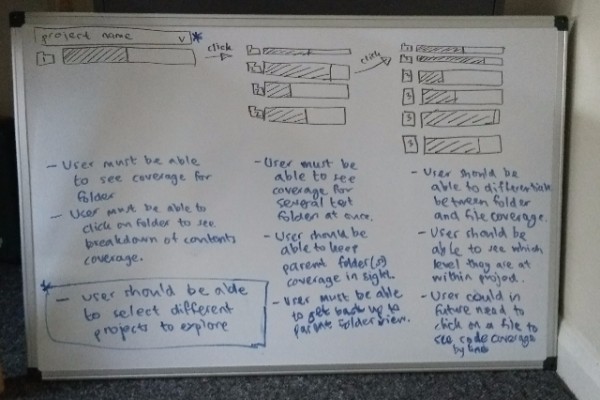 project name v *
click
click
- User must be able
to see coverage for
folder
- User must be able to
click on folder to see
breakdown of contents
coverage.
* - User should be able
to select different
projects to explore
- User must be
able to see
coverage for
several test
folder at once.
- User should be
able to keep
parent folder(s)
coverage in sight.
- User must be able
to get back up to
parent folder view.
- User should be
able to differentiate
between folder
and file coverage.
- User should be
able to see which
level they are at
within project.
- User could in
future need to
click on a file to
see code coverage
by line